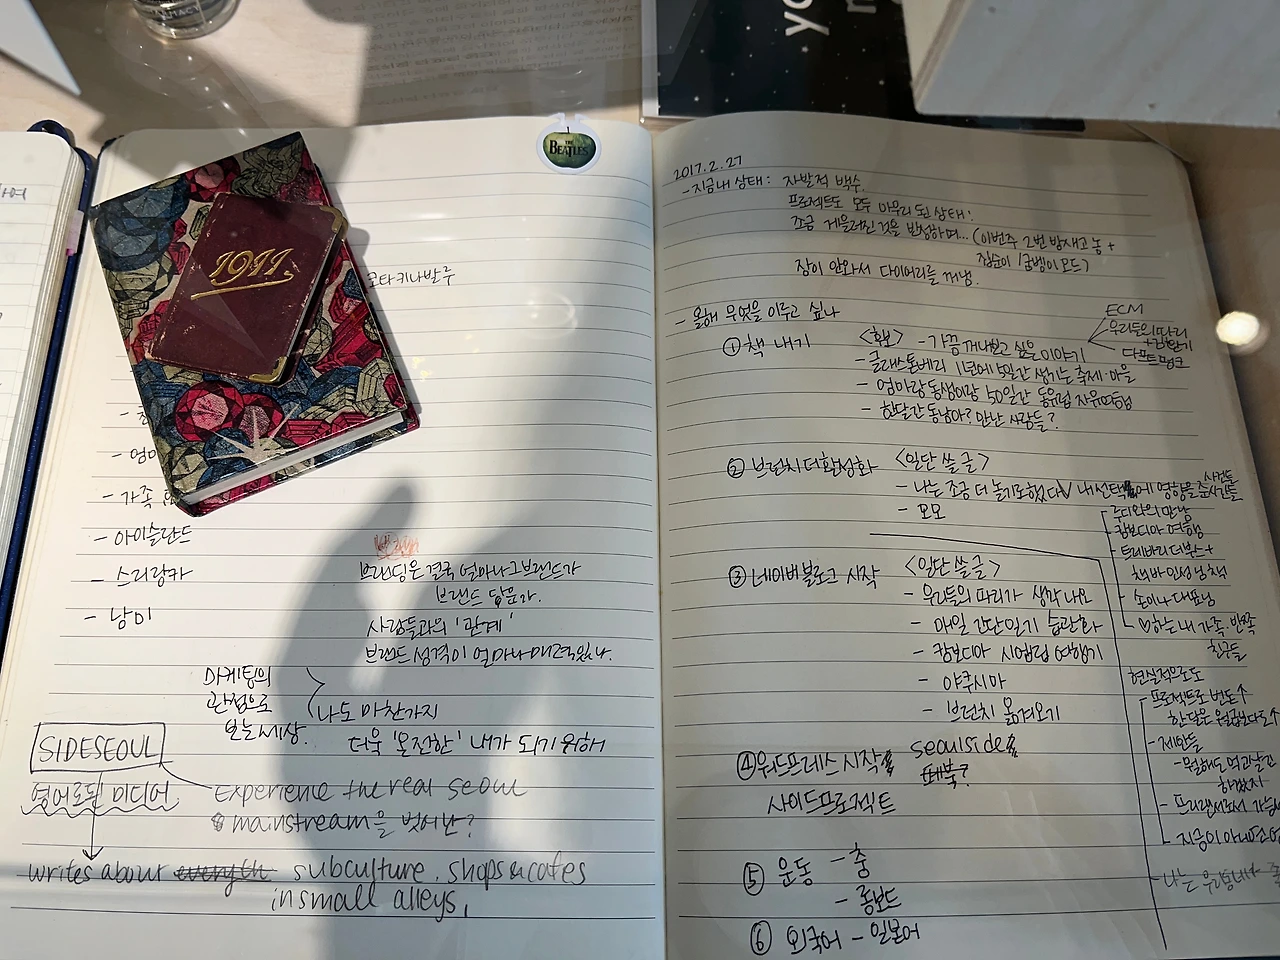 THE
BEATLES
1911
코타키나발루
- 아이슬란드
- 스리랑카
- 남미
브랜딩은 결국 얼마나 그 브랜드가
브랜드 답는가.
사람들과의 '관계'
브랜드 성격이 얼마나 매력있나.
마케팅의
관점으로
보는 세상.
나도 마찬가지
더욱 '온전한' 내가 되기 위해
SIDESEOUL
영어로 된 미디어
Experience the real seoul
mainstream을 벗어난?
writes about subculture. shops & cafes
in small alleys,
2017.2.27
- 지금 내 상태: 자발적 백수.
프로젝트도 모두 마무리 된 상태.
조금 게을러진 것을 반성하며... (이번주 2번 밤새고 놈 +
집순이 / 굼벵이 모드)
잠이 안와서 다이어리를 꺼냄.
- 올해 무엇을 이루고 싶나
① 책 내기 <후보> - 가끔 꺼내보고 싶은 이야기
ECM
우리들의 파리
다프트펑크
- 글래스톤베리 1년에 5일간 생기는 축제 마을
- 엄마랑 동생이랑 50일간 동유럽 자유여행
- 한달간 동남아? 만난 사람들?
② 브런치 더 활성화 <일단 쓸 글>
- 나는 조금 더 놀기로 했다 ✓ 내 선택에 영향을 준 사건들
사람들
- 모모
③ 네이버 블로그 시작 <일단 쓸 글>
- 우리들의 파리가 생각나요
- 매일 간단 일기 습관화
- 캄보디아 시엠립 여행기
- 야쿠시마
- 브런치 옮겨오기
④ 워드프레스 시작 seoulside
사이드프로젝트
⑤ 운동 - 춤
- 롱보드
⑥ 외국어 - 일본어
- 캄보디아 여행
- 트레바리 더부스 +
책바 인성님 책
- 손이나 대표님
- ♡하는 내 가족. 반쪽
친구들
현실적으로도
- 프로젝트로 번 돈↑
한달은 월급보다도↑
- 제안들
- 뭘해도 먹고 살긴
하겠지